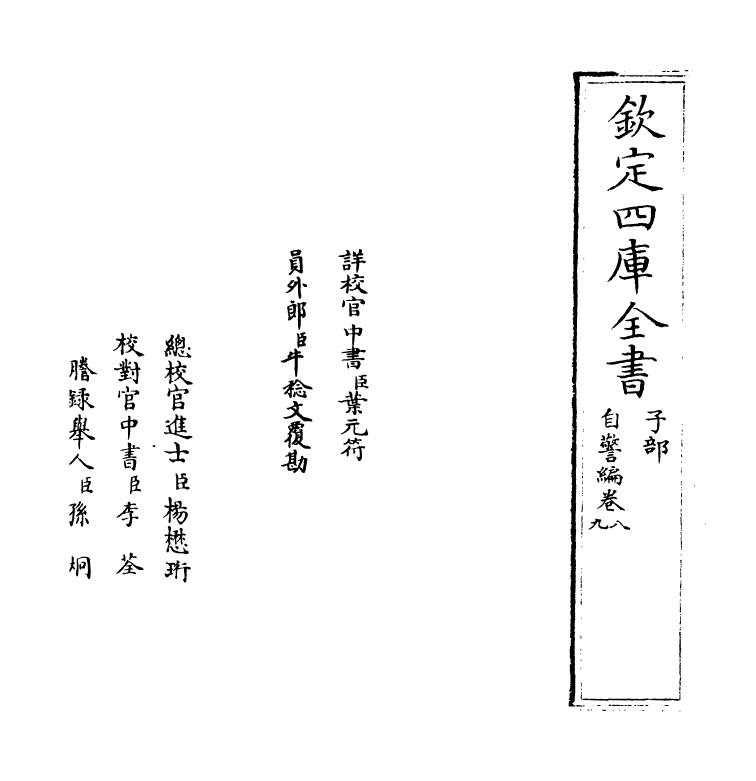 欽定四庫全書
子部
自警編卷八九
詳校官中書臣葉元符
員外郎臣牛稔文覆勘
總校官進士臣楊懋珩
校對官中書臣李荃
謄錄舉人臣孫炯